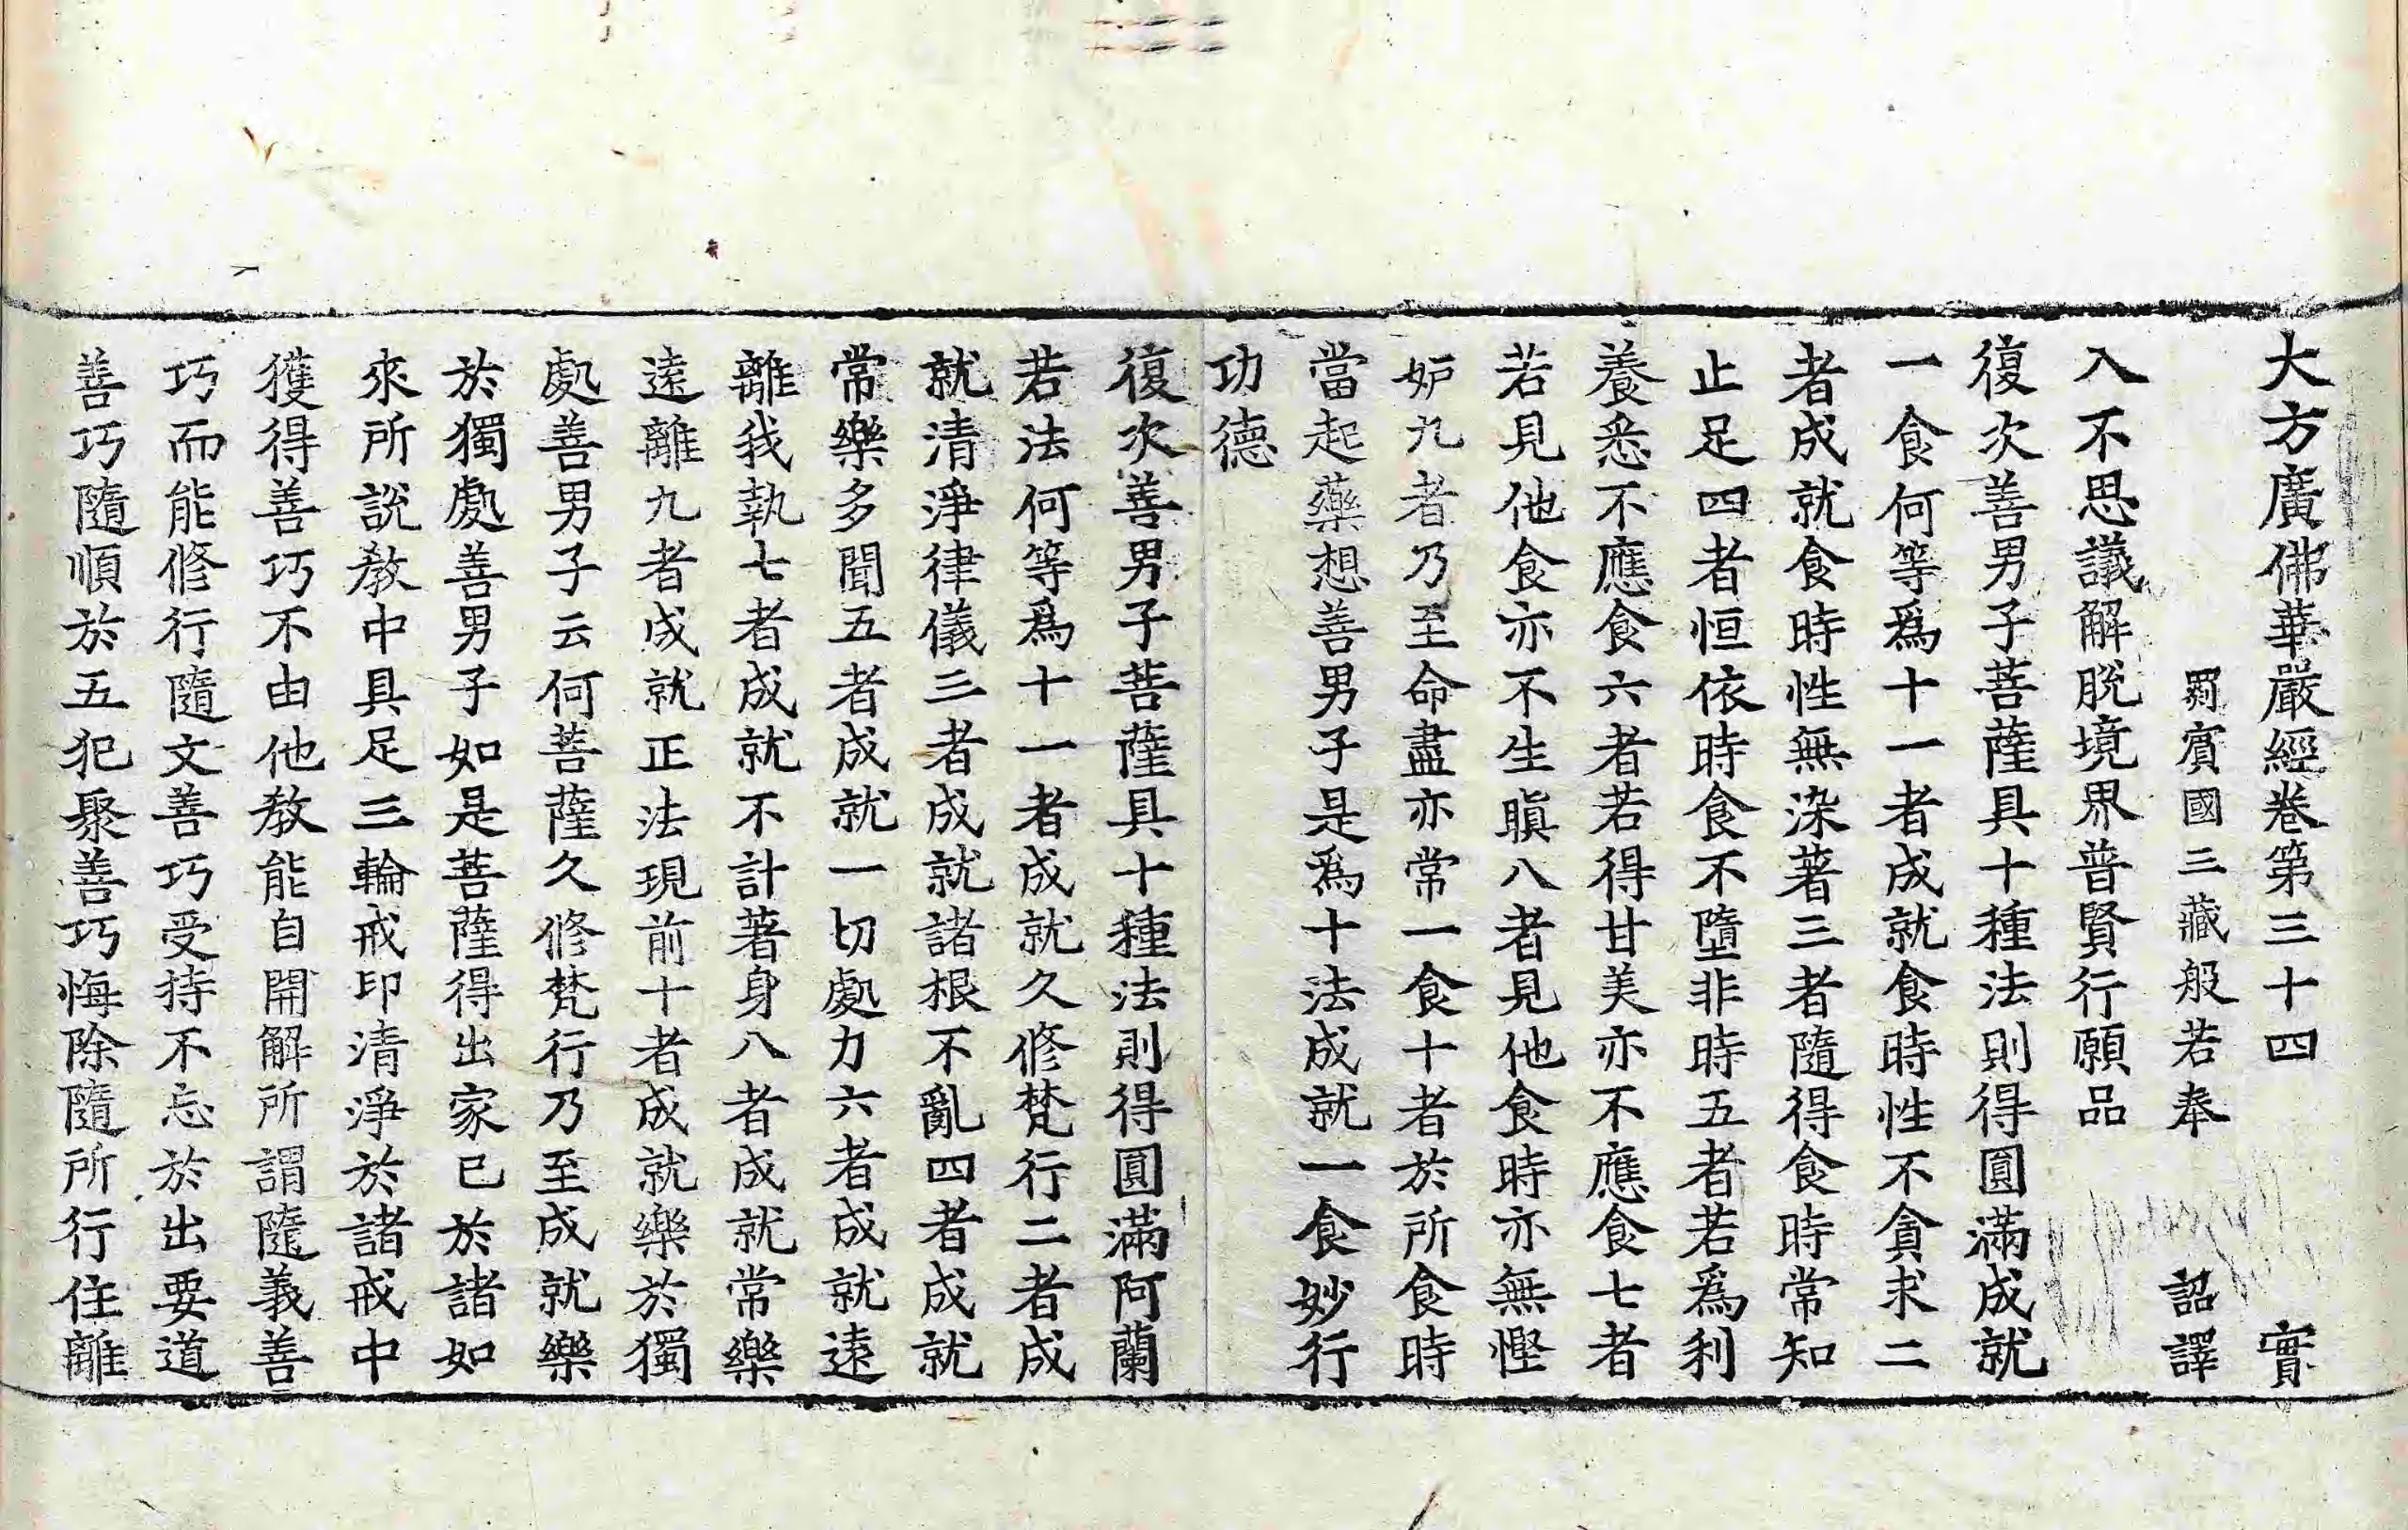 大方廣佛華嚴經卷第三十四 實
罽賓國三藏般若奉 詔譯
入不思議解脫境界普賢行願品
復次善男子菩薩具十種法則得圓滿成就
一食何等爲十一者成就食時性不貪求二
者成就食時性無染著三者隨得食時常知
止足四者恒依時食不墮非時五者若爲利
養悉不應食六者若得甘美亦不應食七者
若見他食亦不生瞋八者見他食時亦無慳
妒九者乃至命盡亦常一食十者於所食時
當起藥想善男子是爲十法成就一食妙行
功德
復次善男子菩薩具十種法則得圓滿阿蘭
若法何等爲十一者成就久修梵行二者成
就清淨律儀三者成就諸根不亂四者成就
常樂多聞五者成就一切處力六者成就遠
離我執七者成就不計著身八者成就常樂
遠離九者成就正法現前十者成就樂於獨
處善男子云何菩薩久修梵行乃至成就樂
於獨處善男子如是菩薩得出家已於諸如
來所說教中具足三輪戒印清淨於諸戒中
獲得善巧不由他教能自開解所謂隨義善
巧而能修行隨文善巧受持不忘於出要道
善巧隨順於五犯聚善巧悔除隨所行住離